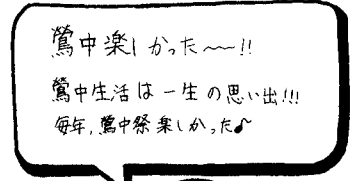 鶯中楽しかった〜〜!!
鶯中生活は一生の思い出!!!
毎年,鶯中祭楽しかった♪